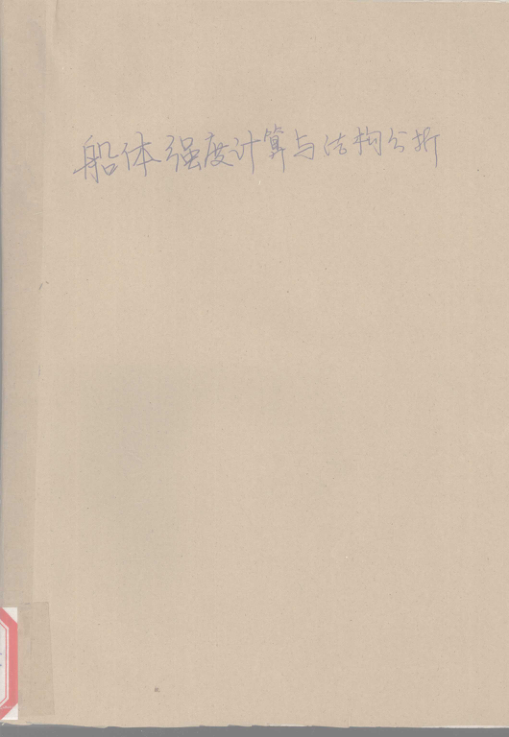 船体强度计算与结构分析